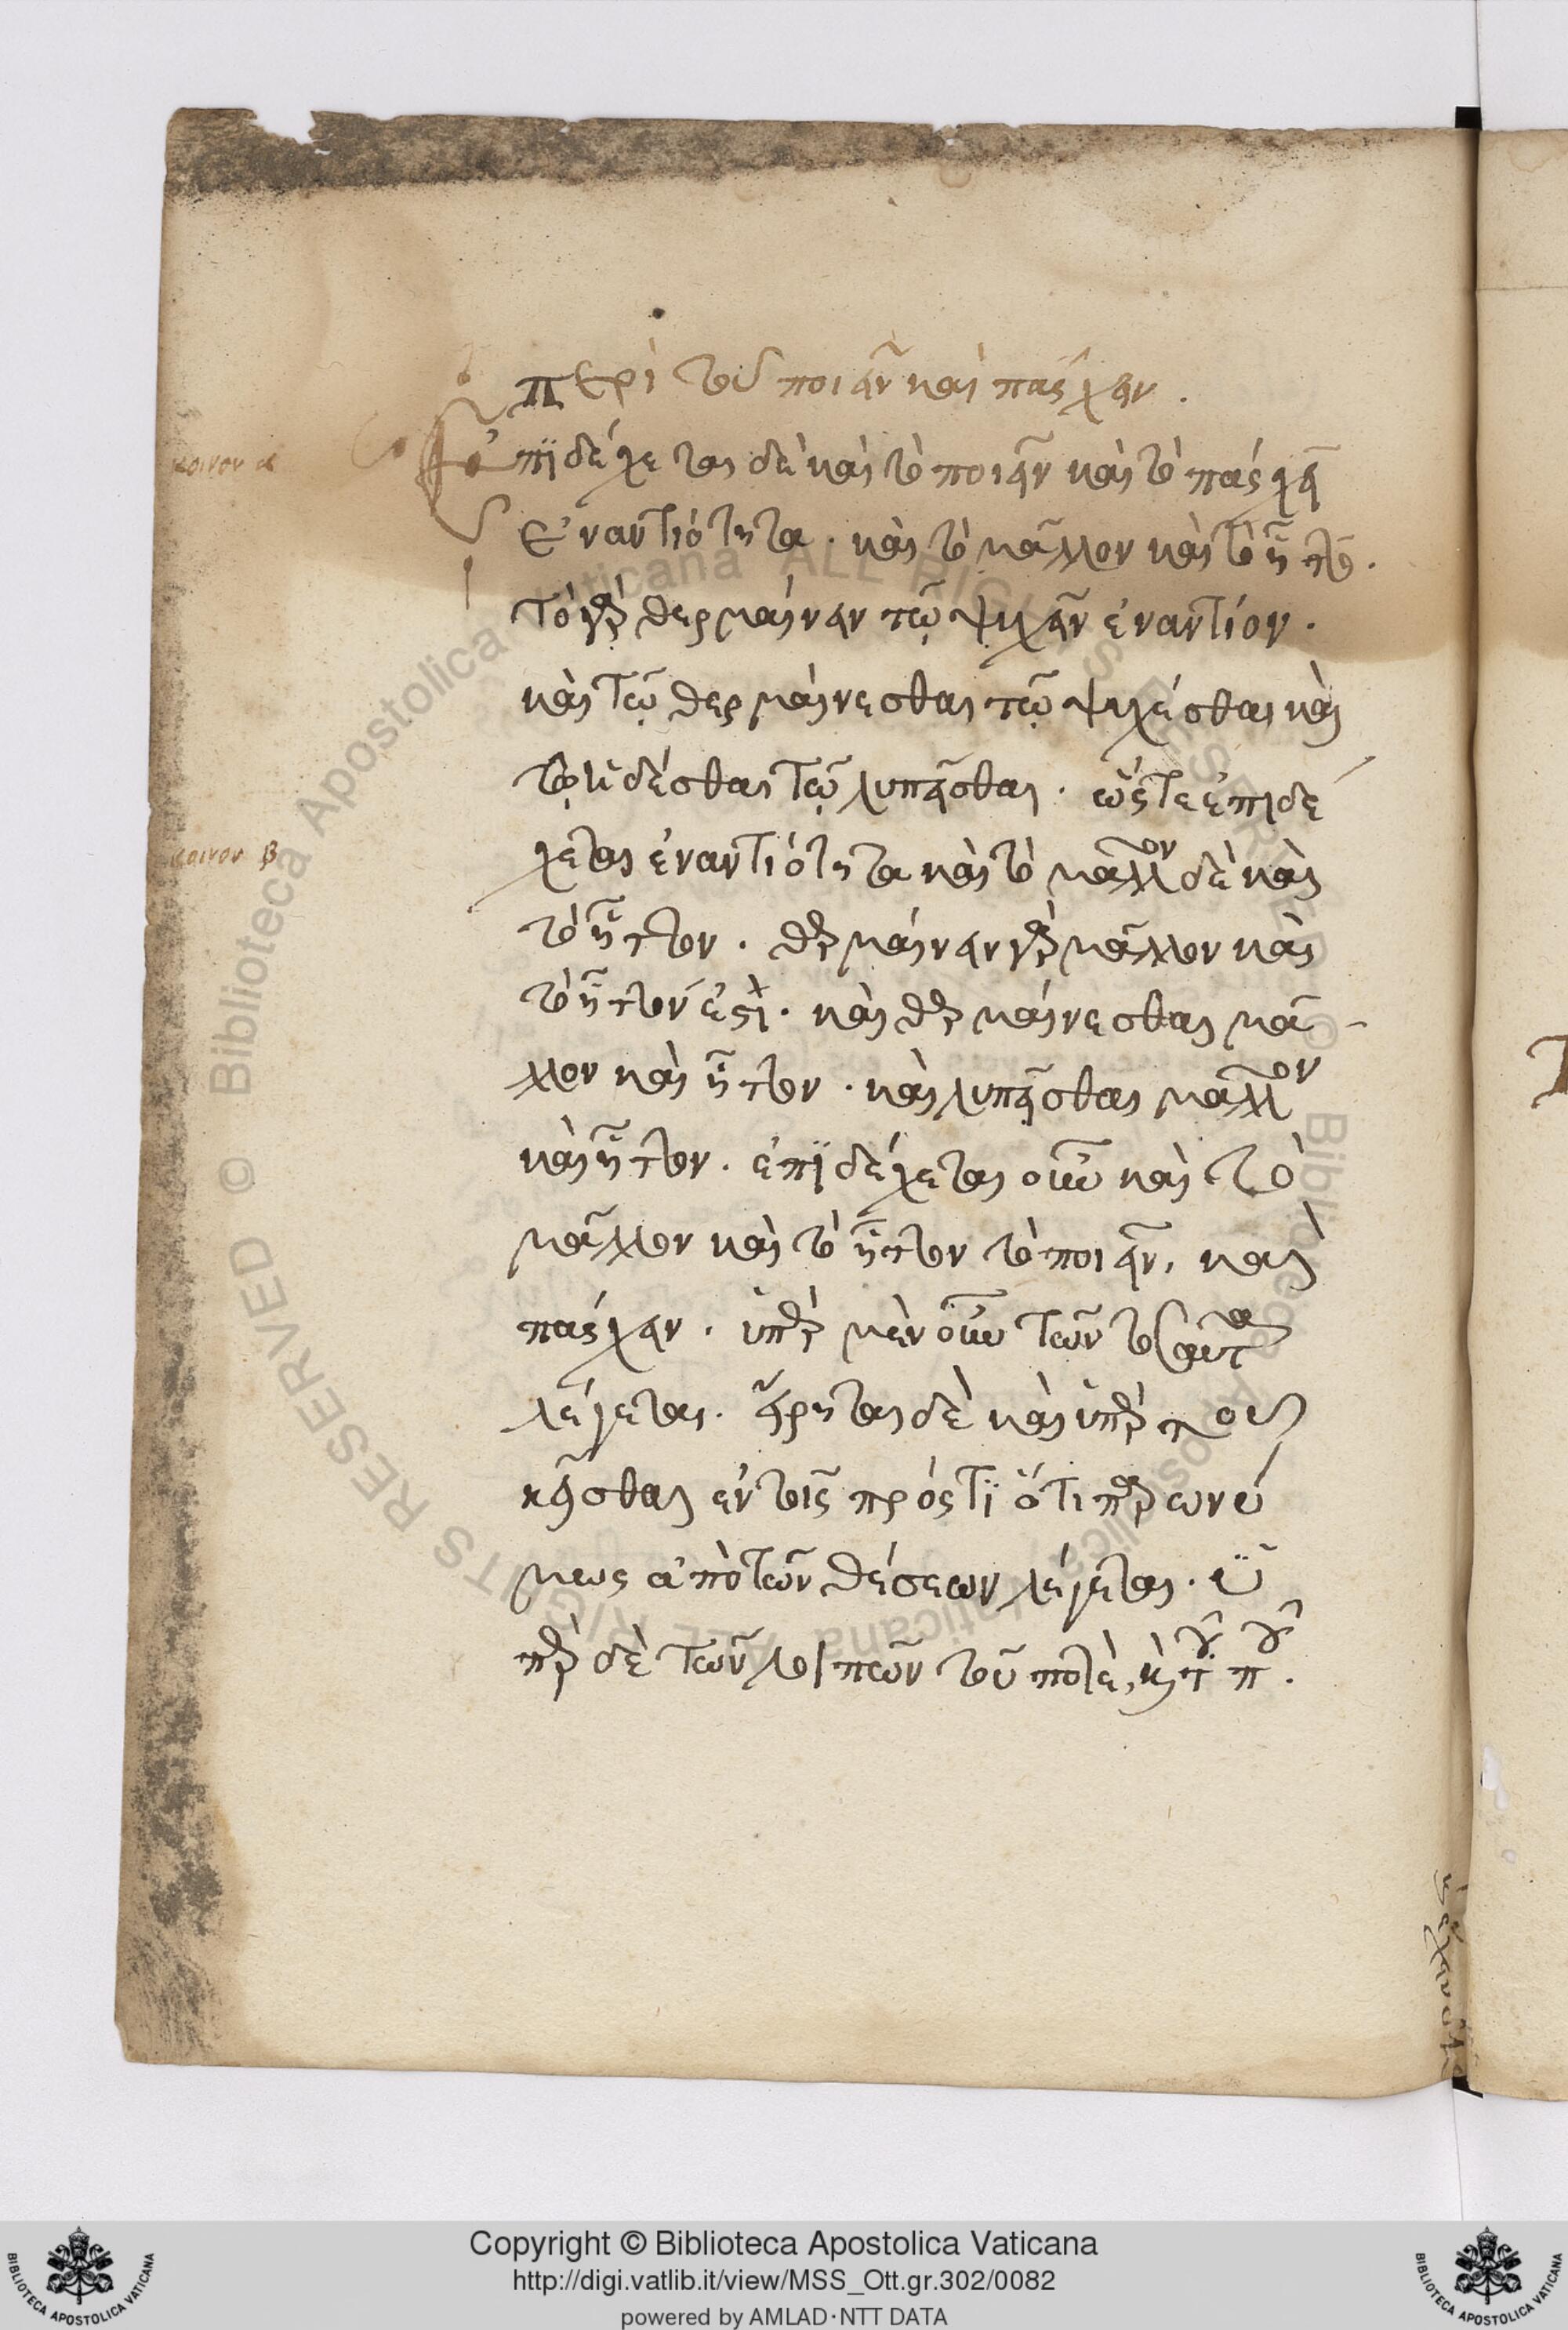 περὶ τοῦ ποιεῖν καὶ πάσχειν.
κοινον α
Ἐπϊδέχεται δὲ καὶ τὸ ποιεῖν καὶ τὸ πάσχειν
ἐναντιότητα. καὶ τὸ μᾶλλον καὶ τὸ ἧττον.
τὸ γὰρ θερμαίνειν τῷ ψύχειν ἐναντίον.
καὶ τῷ θερμαίνεσθαι τῷ ψύχεσθαι καὶ
τῷ ἥδεσθαι τῷ λυπεῖσθαι. ὥστε ἐπιδέ
κοινον β
χεται ἐναντιότητα καὶ τὸ μᾶλλον δὲ καὶ
τὸ ἧττον. θερμαίνειν γὰρ μᾶλλον καὶ
τὸ ἧττόν ἐστὶ. καὶ θερμαίνεσθαι μᾶ
λλον καὶ ἧττον. καὶ λυπεῖσθαι μᾶλλον
καὶ ἧττον. ἐπϊδέχεται οὖν καὶ τὸ
μᾶλλον καὶ τὸ ἧττον τὸ ποιεῖν, καὶ
πάσχειν. ὑπὲρ μὲν οὖν τῶν τοσαῦτα
λέγεται. εἴρηται δὲ καὶ ὑπὲρ τοῦ
κεῖσθαι ἐν τοῖς πρός τϊ ὅτι παρωνύ
μως ἀπὸ τῶν θέσεων λέγεται. ὑ
πὲρ δὲ τῶν λοιπῶν τοῦ ποτὲ, καὶ τοῦ ποῦ.
Copyright © Biblioteca Apostolica Vaticana
http://digi.vatlib.it/view/MSS_Ott.gr.302/0082
powered by AMLAD·NTT DATA
BIBLIOTECA APOSTOLICA VATICANA
BIBLIOTECA APOSTOLICA VATICANA